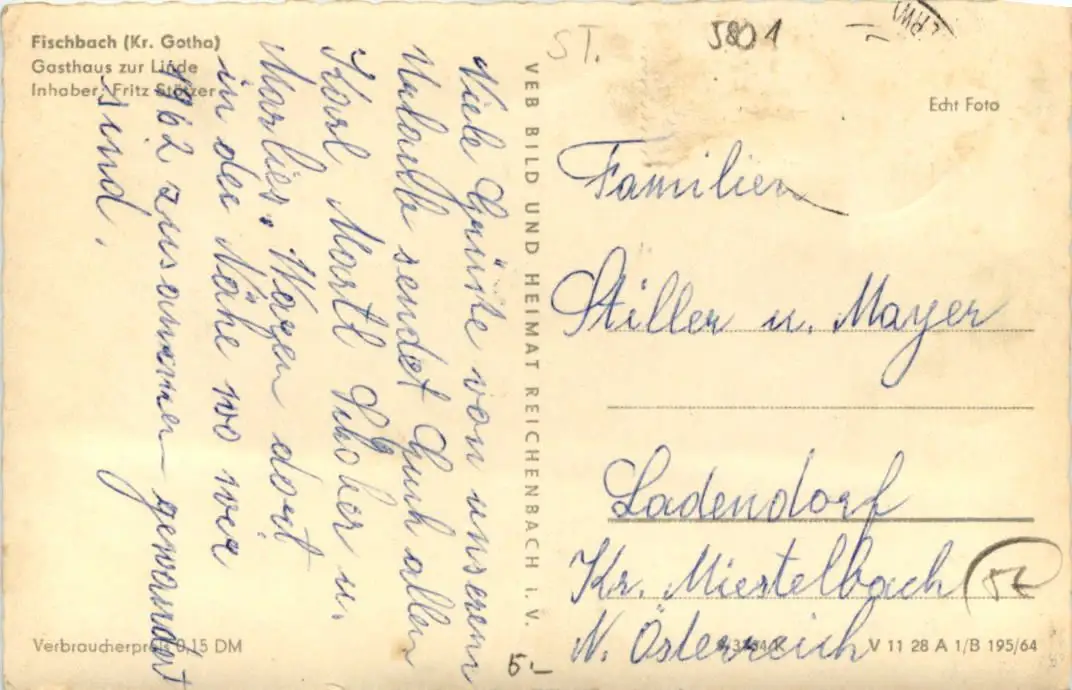 Fischbach (Kr. Gotha)
Gasthaus zur Linde
Inhaber: Fritz Stötzer
Viele Grüße von unserem
Urlaub sendet Euch allen
Karl, Martl Schober u.
Marlies. Waren dort
in der Nähe wo wir
1962 zusammen gewandert
sind.
Verbraucherpreis 0,15 DM
VEB BILD UND HEIMAT REICHENBACH I. V.
ST.
5801
Echt Foto
Familien
Stiller u. Mayer
Ladendorf
Kr. Miestelbach
N. Österreich
V 11 28 A 1/B 195/64
5.-